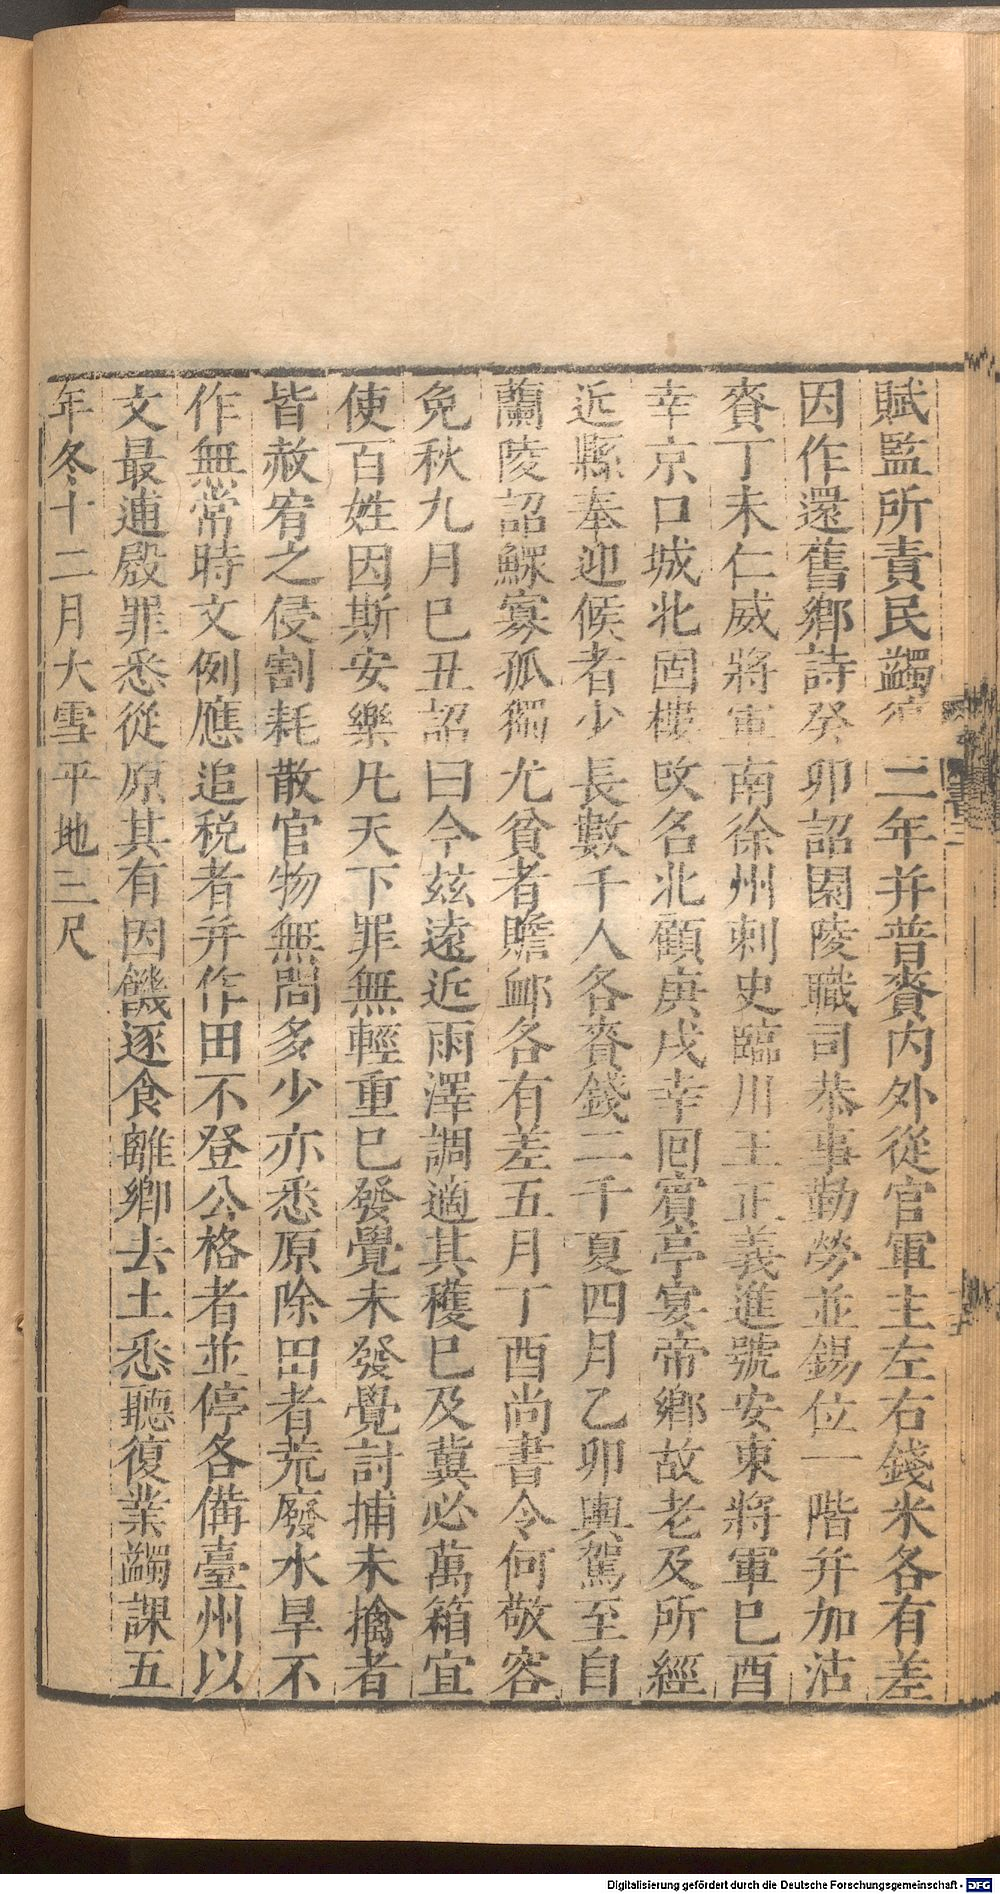 賦監所責民蠲復二年并普賚内外從官軍主左右錢米各有差
因作還舊鄉詩癸卯詔園陵職司恭事勤勞並錫位一階并加沾
賚丁未仁威將軍南徐州刺史臨川王正義進號安東將軍巳酉
幸京口城北固樓攺名北顧庚戌幸囘賓亭宴帝鄉故老及所經
近縣奉迎候者少長數千人各賚錢二千夏四月乙卯輿駕至自
蘭陵詔鰥寡孤獨尤貧者贍䘏各有差五月丁酉尚書令何敬容
免秋九月巳丑詔曰今玆遠近雨澤調適其穫巳及冀必萬箱宜
使百姓因斯安樂凡天下罪無輕重巳發覺未發覺討捕未擒者
皆赦宥之侵割耗散官物無問多少亦悉原除田者荒廢水旱不
作無常時文例應追税者并作田不登公格者並停各備臺州以
文最逋殿罪悉從原其有因饑逐食離鄉去土悉聽復業蠲課五
年冬十二月大雪平地三尺
Digitalisierung gefördert durch die Deutsche Forschungsgemeinschaft - DFG